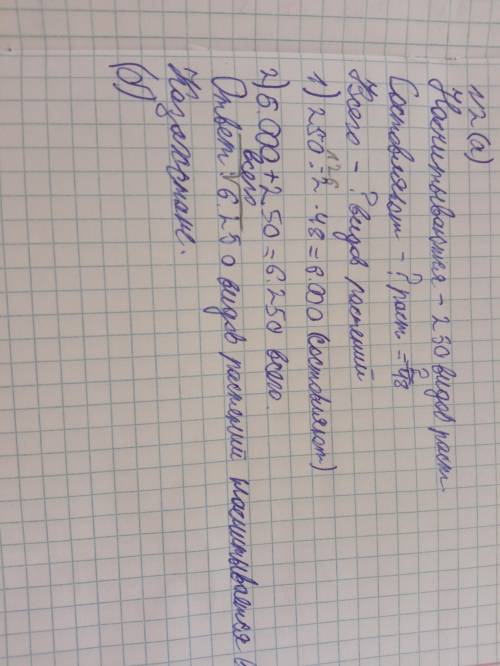 12 (а)
Насчитывается – 250 видов раст
Составляют – ? раст = 2/48
Всего – ? видов растений
125
1) 250 : 2 · 48 = 6.000 (составляют)
2) 6.000 + 250 = 6.250 всего.
всего
Ответ: 6250 видов растений насчитывается в
Казахстане.
(б)